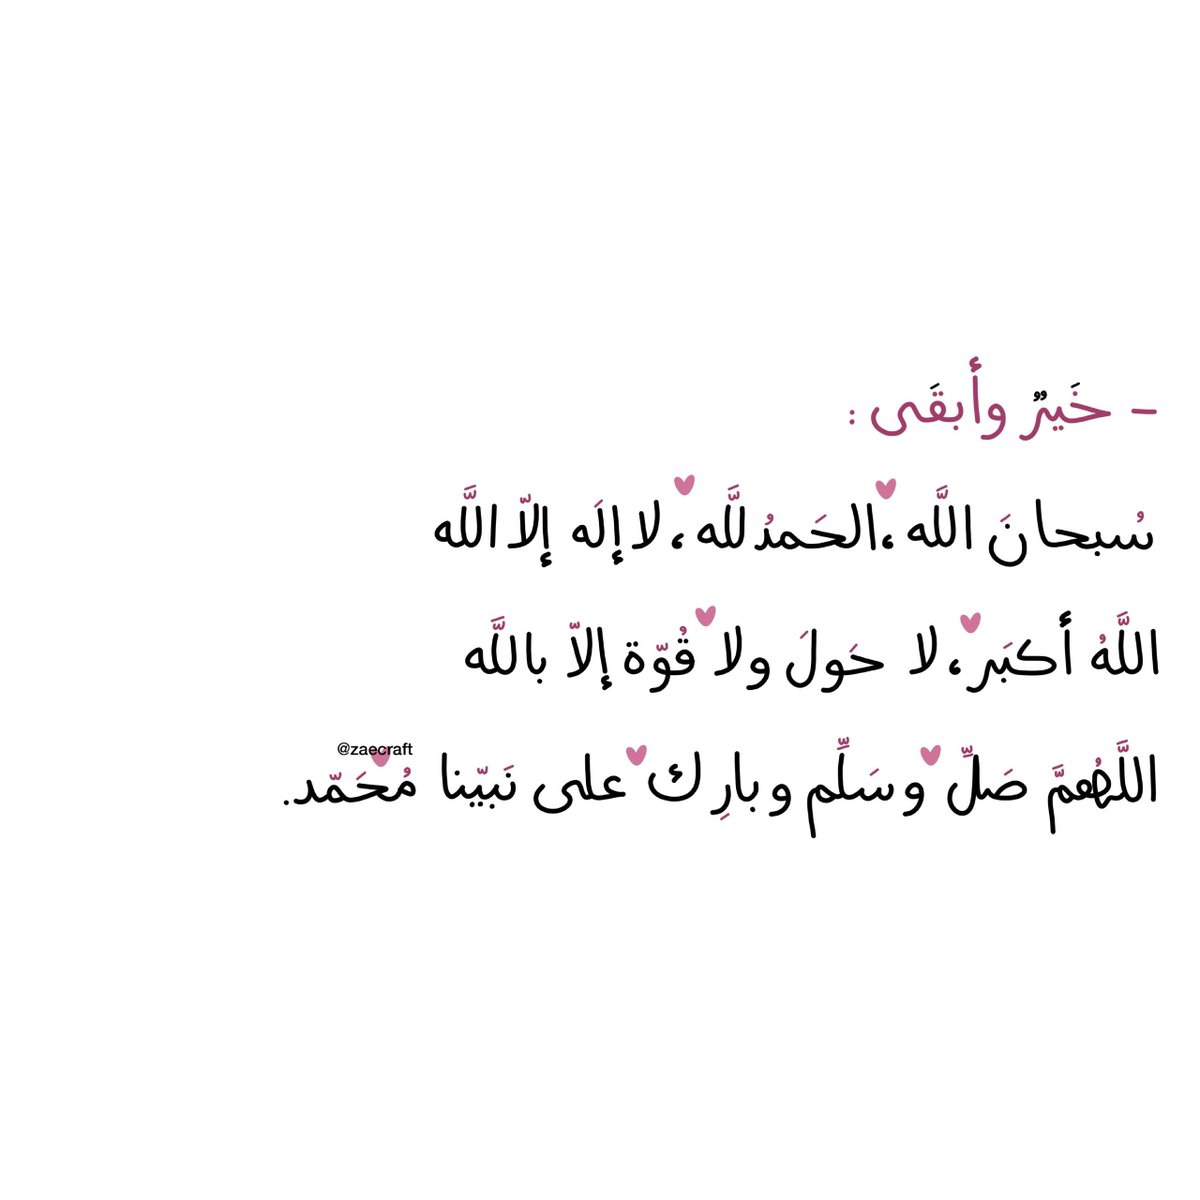 - خَيرٌ وأبقَى :
سُبحانَ اللَّه ،الحَمدُ للَّه ، لا إلَه إلاّ اللَّه
اللَّهُ أكبَر ، لا حَولَ ولا قُوّة إلاّ باللَّه
@zaecraft
اللَّهُمَّ صَلِّ وسَلِّم وبارِك على نَبيّنا مُحَمّد.